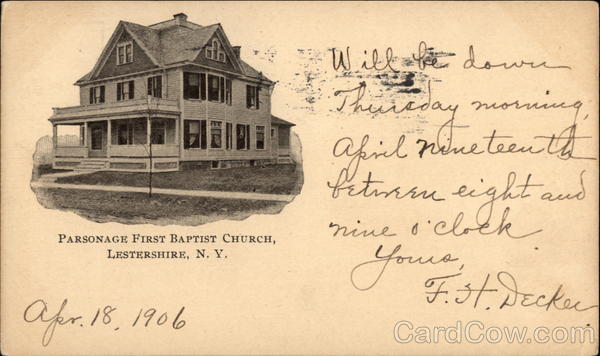 Will be down
Thursday morning,
April nineteenth
between eight and
nine o'clock
Yours,
F. H. Decker.
PARSONAGE FIRST BAPTIST CHURCH,
LESTERSHIRE, N. Y.
Apr. 18, 1906
CardCow.com